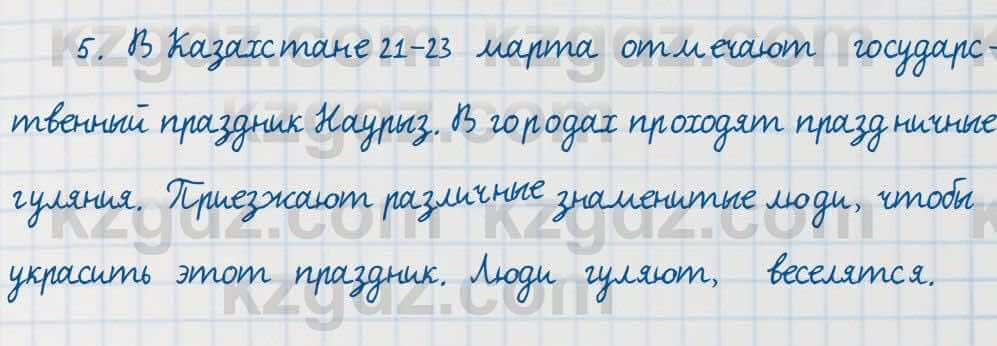 5. В Казахстане 21-23 марта отмечают государс-
твенный праздник Наурыз. В городах проходят праздничные
гуляния. Приезжают различные знаменитые люди, чтобы
украсить этот праздник. Люди гуляют, веселятся.
kzgdz.com